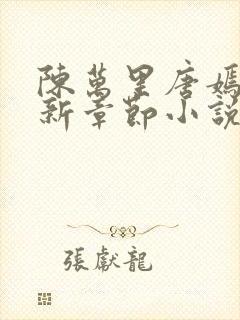 陳萬里唐嫣
新章節小說
張獻龍